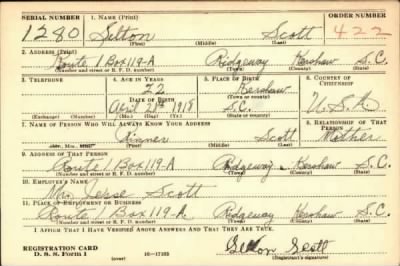 SERIAL NUMBER 1. NAME (Print) ORDER NUMBER
1280 Selton Scott 422
(First) (Middle) (Last)
2. ADDRESS (Print)
Route 1 Box 119-A Ridgeway Kershaw S.C.
(Number and street or R. F. D. number) (Town) (County) (State)
3. TELEPHONE 4. AGE IN YEARS 5. PLACE OF BIRTH 6. COUNTRY OF CITIZENSHIP
22 Kershaw
DATE OF BIRTH (Town or county)
April 1918 S.C. U.S.A.
(Exchange) (Number) (Mo.) (Day) (Yr.) (State or country)
7. NAME OF PERSON WHO WILL ALWAYS KNOW YOUR ADDRESS 8. RELATIONSHIP OF THAT PERSON
Scott Mother
(Mr., Mrs., Miss) (First) (Middle) (Last)
9. ADDRESS OF THAT PERSON
Route 1 Box 119-A Ridgeway Kershaw S.C.
(Number and street or R. F. D. number) (Town) (County) (State)
10. EMPLOYER'S NAME
Mr. Jesse Scott
11. PLACE OF EMPLOYMENT OR BUSINESS
Route 1 Box 119-A Ridgeway Kershaw S.C.
(Number and street or R. F. D. number) (Town) (County) (State)
I AFFIRM THAT I HAVE VERIFIED ABOVE ANSWERS AND THAT THEY ARE TRUE.
REGISTRATION CARD Selton Scott
D. S. S. Form 1 (over) (Registrant's signature)